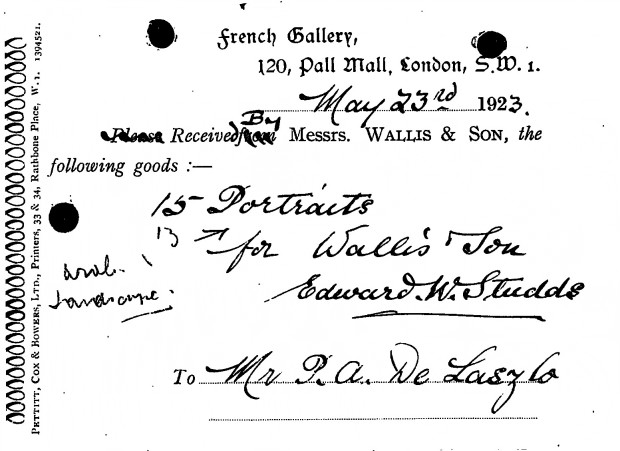 French Gallery,
120, Pall Mall, London, S.W. 1.
May 23rd 1923.
By
Please Received from Messrs. WALLIS & SON, the
following goods :—
15 Portraits
13 for Wallis & Son
landscape.
Edward. W. Studds
To Mr P. A. De Laszlo
PETTITT, COX & BOWERS, LTD., Printers, 33 & 34, Rathbone Place, W. 1. 1394521.